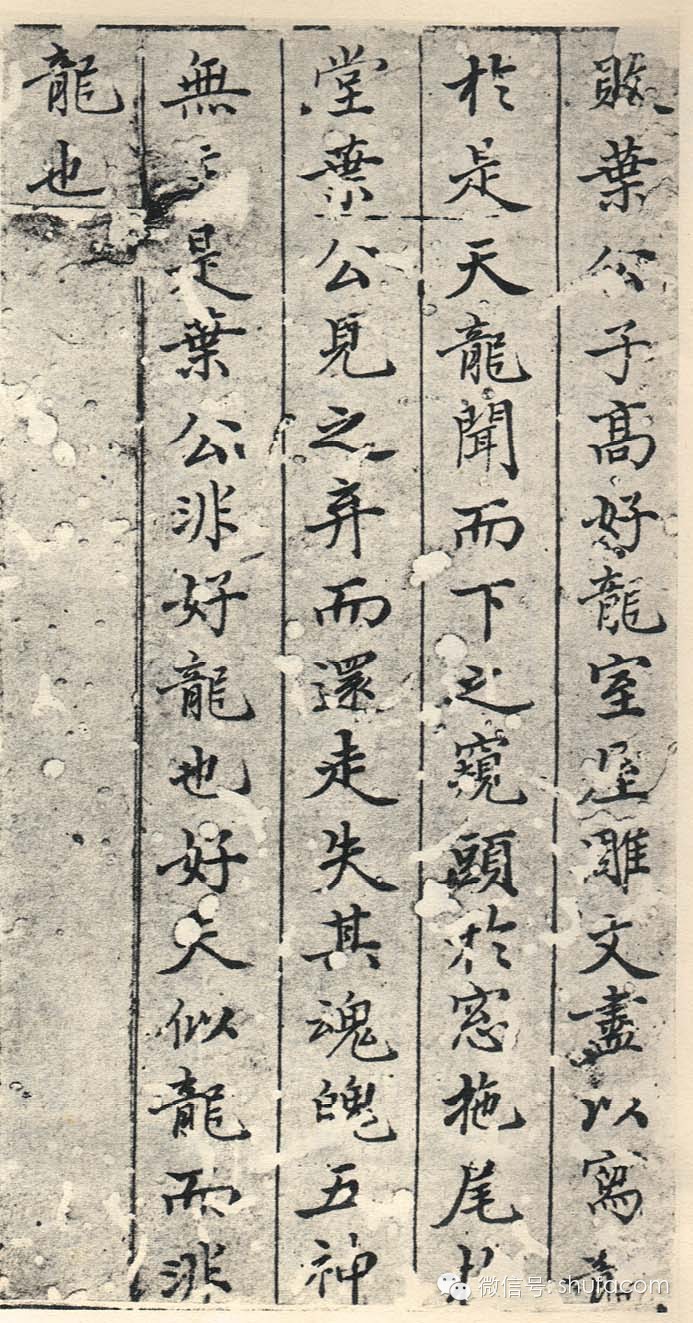 敗葉公子高好龍室屋雕文盡以寫龍
於是天龍聞而下之窺頭於窓拖尾於
堂葉公見之弃而還走失其魂魄五神
無主是葉公非好龍也好夫似龍而非
龍也
微信号: shufa.com